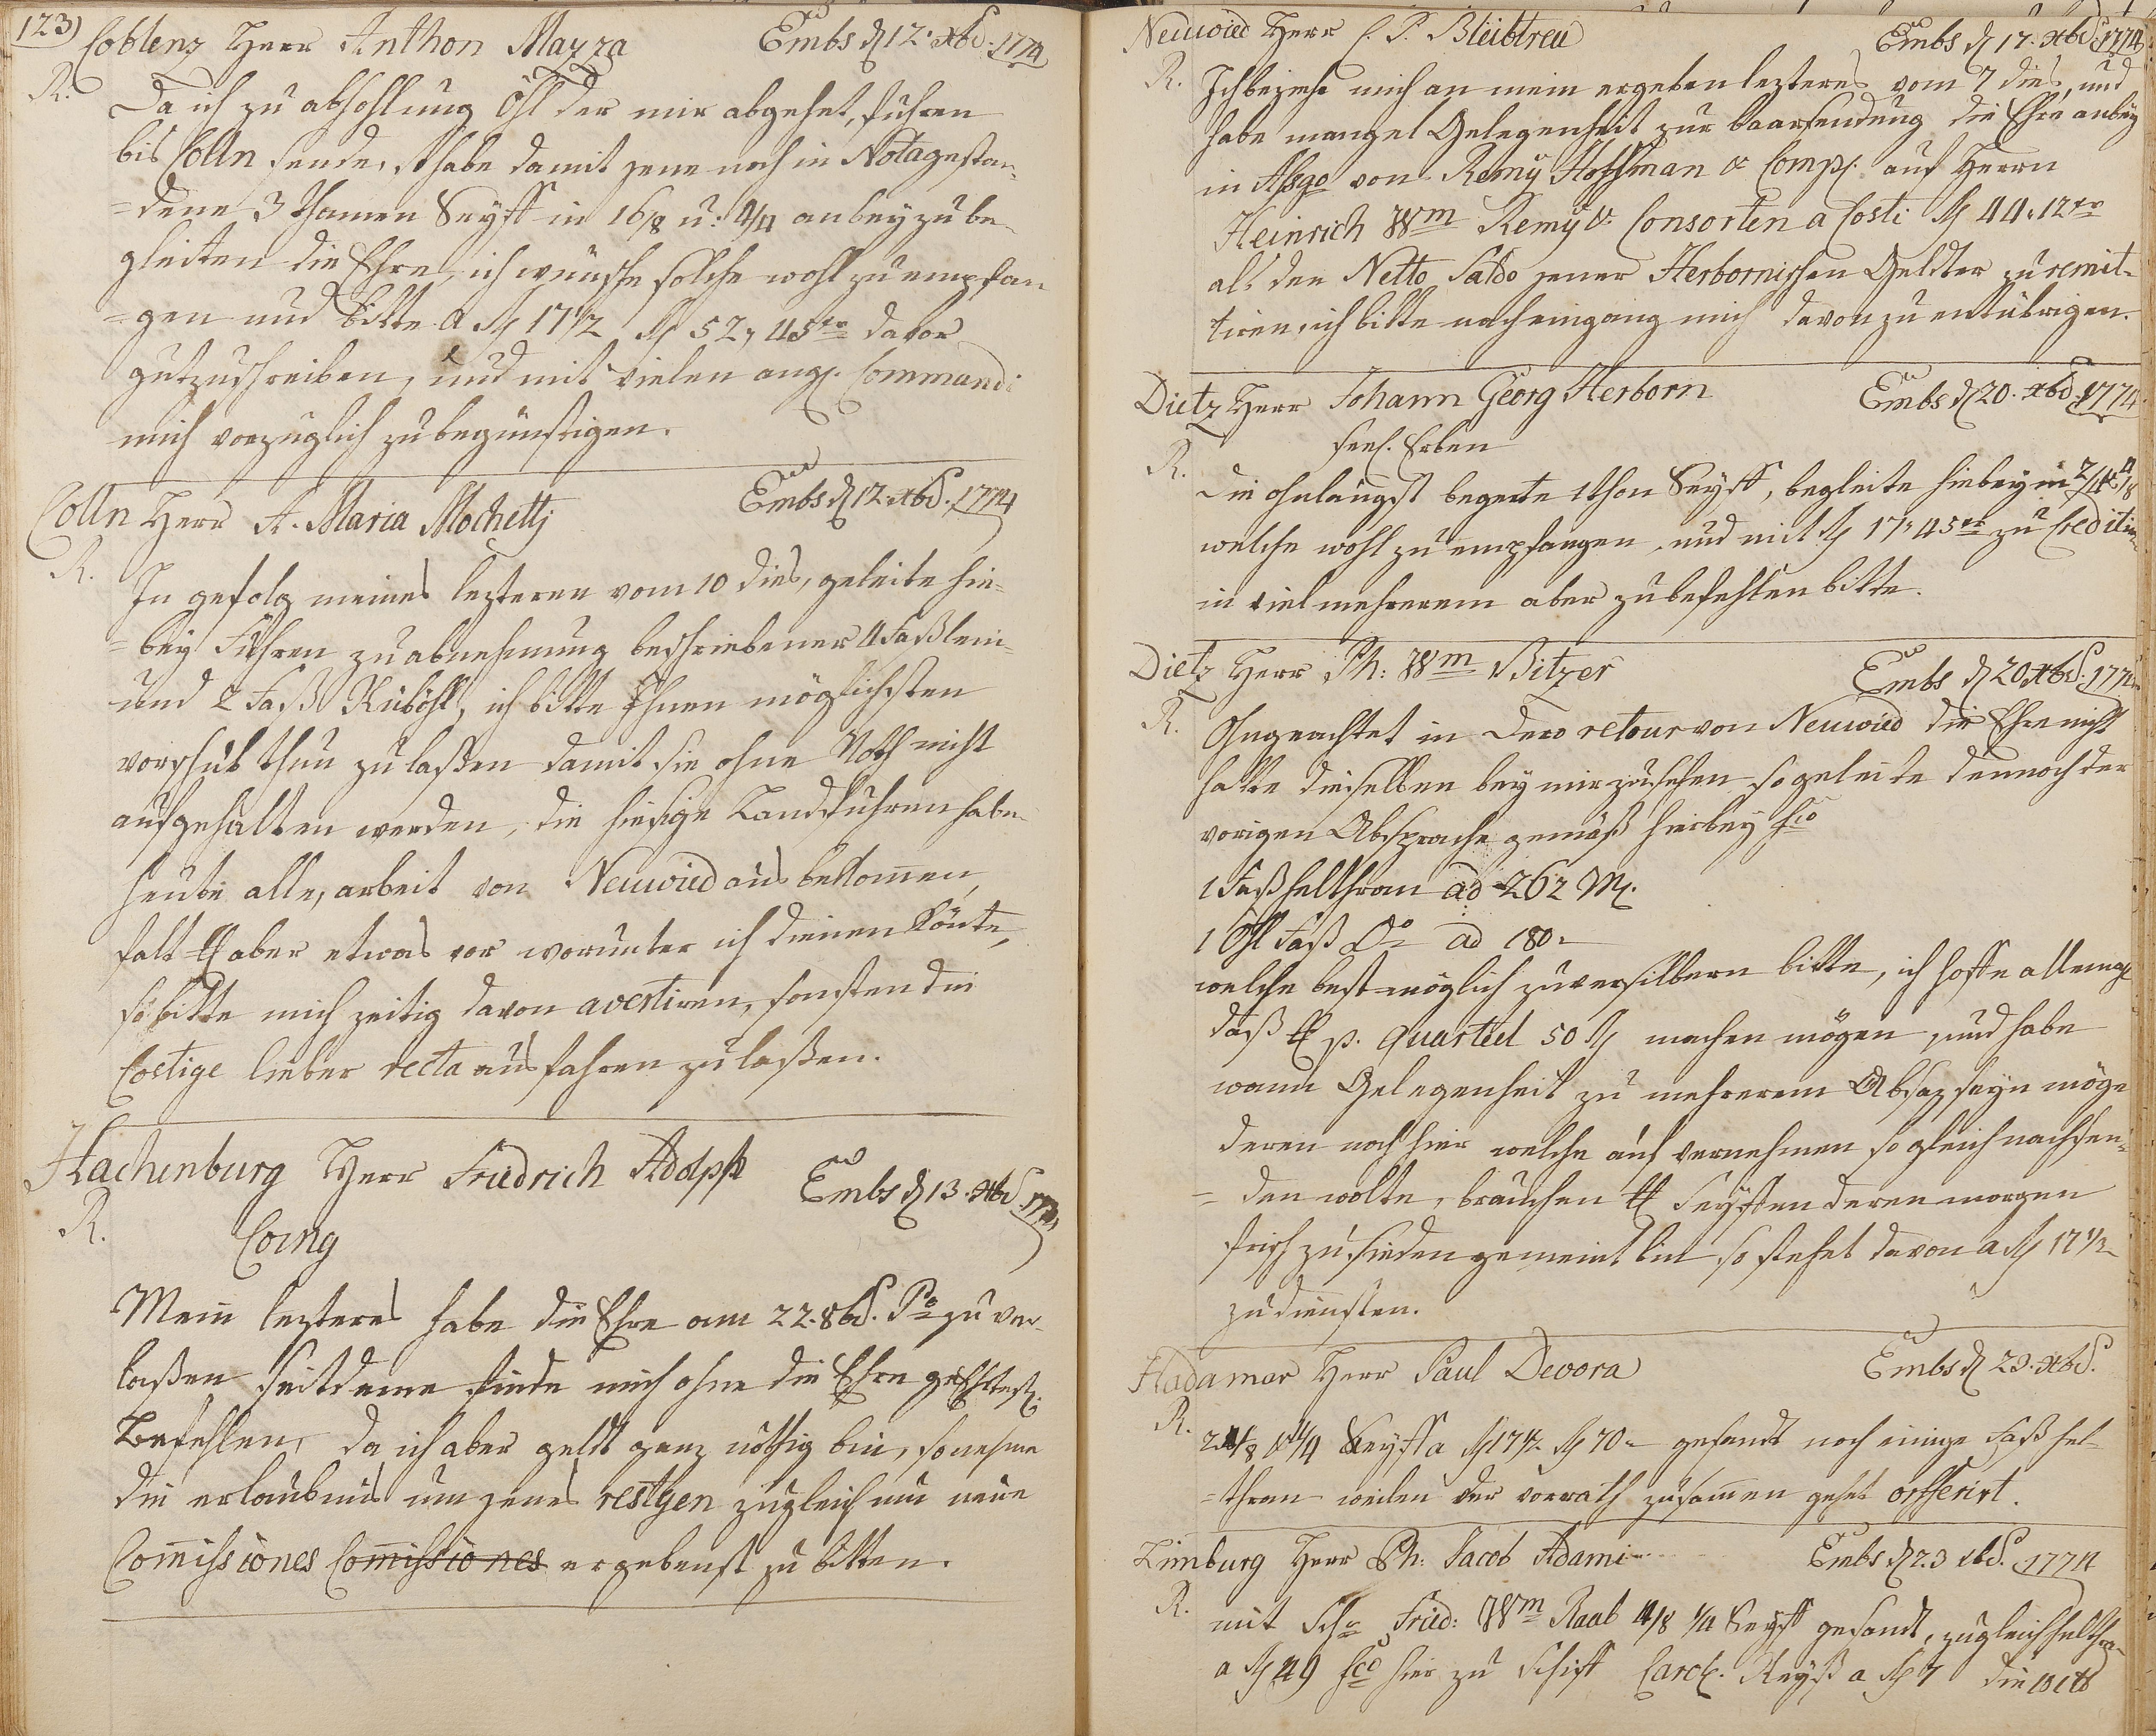 123)
Coblenz Herr Anthon Mazza Embs d 12. xbr. 1774
R.
Da ich zu abhohlung Öhl der mir abgehet, fuhren
bis Cölln sende, habe damit jene noch in Nota gestan-
=dene 3 thonnen Seyff in 16/8 u: 4/4 anbey zu be-
gleiten die Ehre, ich wünsche solche wohl zu empfan
=gen und bitte a 17 1/2 52,, 45 xr davor
gutzuschreiben, und mit vielen ang. Commandi
mich vorzüglich zu begünstigen.
Cölln Herr A. Maria Mochettj Embs d 12. xbr. 1774
R.
In gefolg meines lezteren vom 10 dies, geleite hie-
=bey Fuhren zu abnehmung beschriebener 4 Faß lein-
und 2 Faß Rüböhl, ich bitte Ihnen möglichsten
vorschub thun zu laßen damit sie ohne Noth nicht
aufgehalten werden, die hiesige Landfuhren habe
heute alle, arbeit von Neuwied aus bekommen,
falt aber etwas vor worunter ich dienen könte,
so bitte mich zeitig davon avertiren, sonsten die
Costige lieber recta ausfahren zu laßen.
Hachenburg Herr Friedrich Adolph Embs d 13. xbr. 1774
R. Coing
Mein lezteres habe die Ehre am 22. 8br. Po zu ver-
laßen seitdeme finde mich ohne die Ehre
Befehlen, da ich aber geldt ganz nöthig bin, so nehme
die erlaubnus um jenes restgen zugleich um neue
Commissiones Commissiones ergebenst zu bitten.
Neuwied Herr C. P. Bleibtreu Embs d 17. xbr. 1774
R. Ich beziehe mich an mein ergeben lezteres vom 7 dies, und
habe mangel Gelegenheit zur baarsendung die Ehre anbey
in Assgo von Remy Hoffman & Comp: auf Herrn
Heinrich Wm Remy & Consorten a Costi 44,, 12 xr
als den Netto Saldo jener Herbornischen Geldter zu remit-
tiren, ich bitte nach eingang mich davon zu entübrigen.
Dietz Herr Johann Georg Herborn Embs d 20. xbr. 1774
seel. Erben
R.
Die ohnlängst begerte 1 thon Seyff, begleite hiebey in 2/4 4/8
welche wohl zu empfangen, und mit 17,, 45 xr zu Creditiren
in viel mehrerem aber zu befehlen bitte.
Dietz Herr Ph: Wm Bitzer Embs d 20 xbr. 1774
R.
Ohngeachtet in Dero retour von Neuwied die Ehre nicht
hatte dieselben bey mir zu sehen so geleite dennoch der
vorigen Absprache gemäß hierbey fco
1 Faß helthran ad 262
1 Öhl Faß Do ad 180 -
welche bestmöglich zu versilbern bitte, ich hoffe allemahl
daß p. quarteel 50 machen mögen, und habe
wann Gelegenheit zu mehrerem Absaz seyn möge
deren noch hier welche auf vernehmen sogleich nachsen-
=den wolte, brauchen Seyffen deren morgen
frisch zu sieden gemeint bin so stehet davon a 17 1/2
zu diensten.
Hadamar Herr Paul Devora Embs d 23. xbr.
R.
Seyff a 17 1/2 70 - gesandt noch einige Faß hel-
=thran weilen der vorrath zusammen gehet offerirt.
Limburg Herr Ph: Jacob Adami Embs d 23 xbr. 1774
R.
mit Fried: Wm Raab 4/8 1/4 Seyff gesandt, zugleich helthran
a 49 fco hier zu schiff Carol. Reyß a 7 die